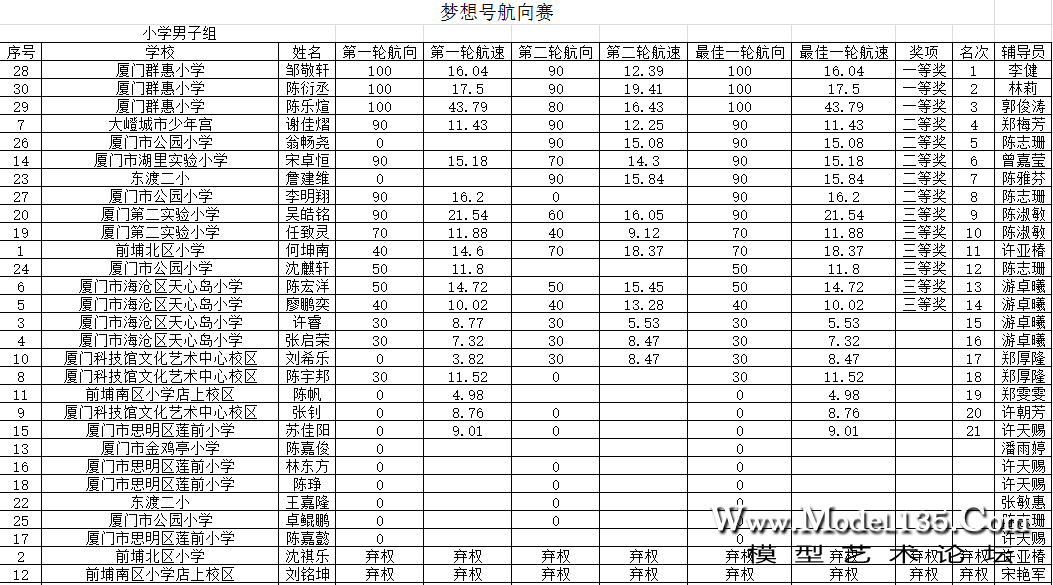 梦想号航向赛
小学男子组
序号 学校 姓名 第一轮航向 第一轮航速 第二轮航向 第二轮航速 最佳一轮航向 最佳一轮航速 奖项 名次 辅导员
28 厦门群惠小学 邹敬轩 100 16.04 90 12.39 100 16.04 一等奖 1 李健
30 厦门群惠小学 陈衍丞 100 17.5 90 19.41 100 17.5 一等奖 2 林莉
29 厦门群惠小学 陈乐煊 100 43.79 80 16.43 100 43.79 一等奖 3 郭俊涛
7 大嶝城市少年宫 谢佳熠 90 11.43 90 12.25 90 11.43 二等奖 4 郑梅芳
26 厦门市公园小学 翁畅尧 0 90 15.08 90 15.08 二等奖 5 陈志珊
14 厦门市湖里实验小学 宋卓恒 90 15.18 70 14.3 90 15.18 二等奖 6 曾嘉莹
23 东渡二小 詹建维 0 90 15.84 90 15.84 二等奖 7 陈雅芬
27 厦门市公园小学 李明翔 90 16.2 0 90 16.2 二等奖 8 陈志珊
20 厦门第二实验小学 吴皓铭 90 21.54 60 16.05 90 21.54 三等奖 9 陈淑敏
19 厦门第二实验小学 任致灵 70 11.88 40 9.12 70 11.88 三等奖 10 陈淑敏
1 前埔北区小学 何坤南 40 14.6 70 18.37 70 18.37 三等奖 11 许亚椿
24 厦门市公园小学 沈麒轩 50 11.8 50 11.8 三等奖 12 陈志珊
6 厦门市海沧区天心岛小学 陈宏洋 50 14.72 50 15.45 50 14.72 三等奖 13 游卓曦
5 厦门市海沧区天心岛小学 廖鹏奕 40 10.02 40 13.28 40 10.02 三等奖 14 游卓曦
3 厦门市海沧区天心岛小学 许睿 30 8.77 30 5.53 30 5.53 15 游卓曦
4 厦门市海沧区天心岛小学 张启荣 30 7.32 30 8.47 30 7.32 16 游卓曦
10 厦门科技馆文化艺术中心校区 刘希乐 0 3.82 30 8.47 30 8.47 17 郑厚隆
8 厦门科技馆文化艺术中心校区 陈宇邦 30 11.52 0 30 11.52 18 郑厚隆
11 前埔南区小学店上校区 陈帆 0 4.98 0 4.98 19 郑雯雯
9 厦门科技馆文化艺术中心校区 张钊 0 8.76 0 0 8.76 20 许朝芳
15 厦门市思明区莲前小学 苏佳阳 0 9.01 0 0 9.01 21 许天赐
13 厦门市金鸡亭小学 陈嘉俊 0 0 潘雨婷
16 厦门市思明区莲前小学 林东方 0 0 0 许天赐
18 厦门市思明区莲前小学 陈琤 0 0 0 许天赐
22 东渡二小 王嘉隆 0 0 0 张敏惠
25 厦门市公园小学 卓鲲鹏 0 0 0 陈志珊
17 厦门市思明区莲前小学 陈嘉懿 0 0 许天赐
2 前埔北区小学 沈祺乐 弃权 弃权 弃权 弃权 弃权 弃权 弃权 弃权 许亚椿
12 前埔南区小学店上校区 刘铭坤 弃权 弃权 弃权 弃权 弃权 弃权 弃权 弃权 宋艳军
Www.Model135.Com
模型艺术论坛